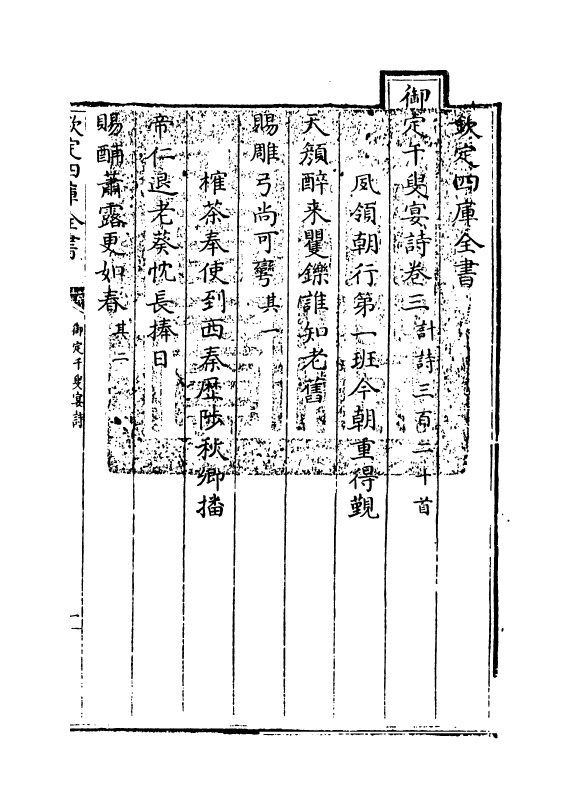 欽定四庫全書
御定千叟宴詩卷三 計詩三百二十首
夙領朝行第一班今朝重得覲
天顔醉来矍鑠誰知老舊
賜雕弓尚可彎其一
榷茶奉使到西秦歴陟秋卿播
帝仁退老葵忱長捧日
賜酺蕭露更如春其二
欽定四庫全書
御定千叟宴詩
一